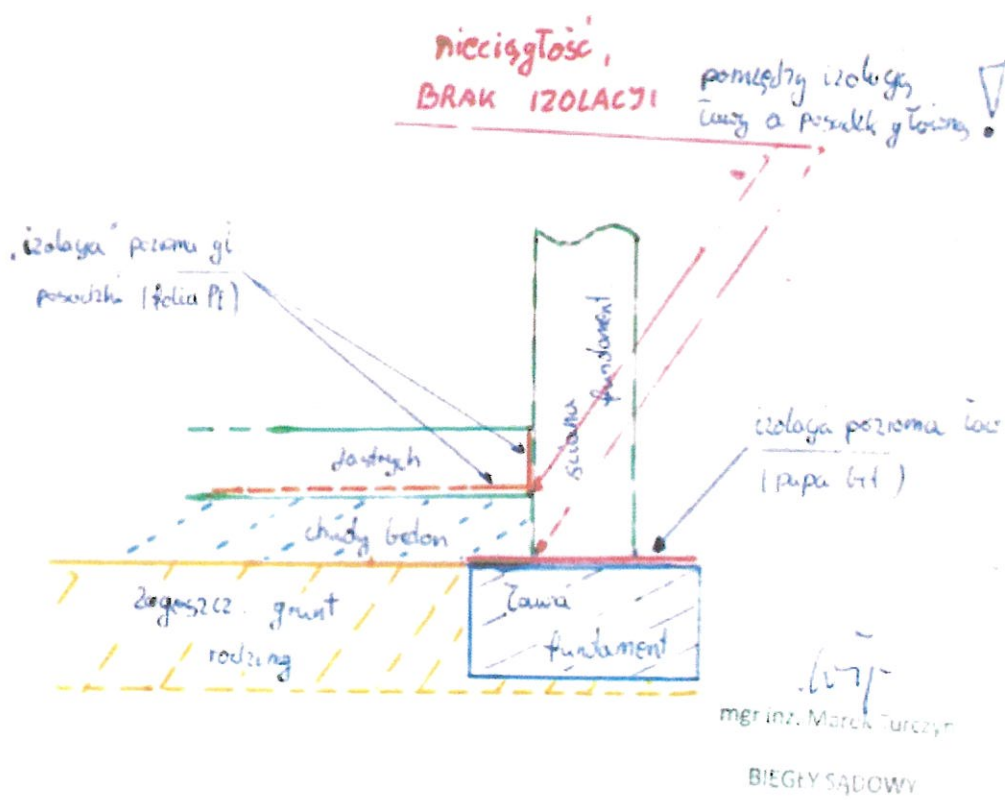 nieciągłość,
BRAK IZOLACJI
pomiędzy izolacją
ławy a posadzk główną !
„izolacja" pozioma gł
posadzki (folia PE)
ściana
fundament
izolacja pozioma ław
(papa bit)
jastrych
chudy beton
zagęszcz. grunt
rodzimy
Ława
fundament
mgr inż. Marek Turczyn
BIEGŁY SĄDOWY